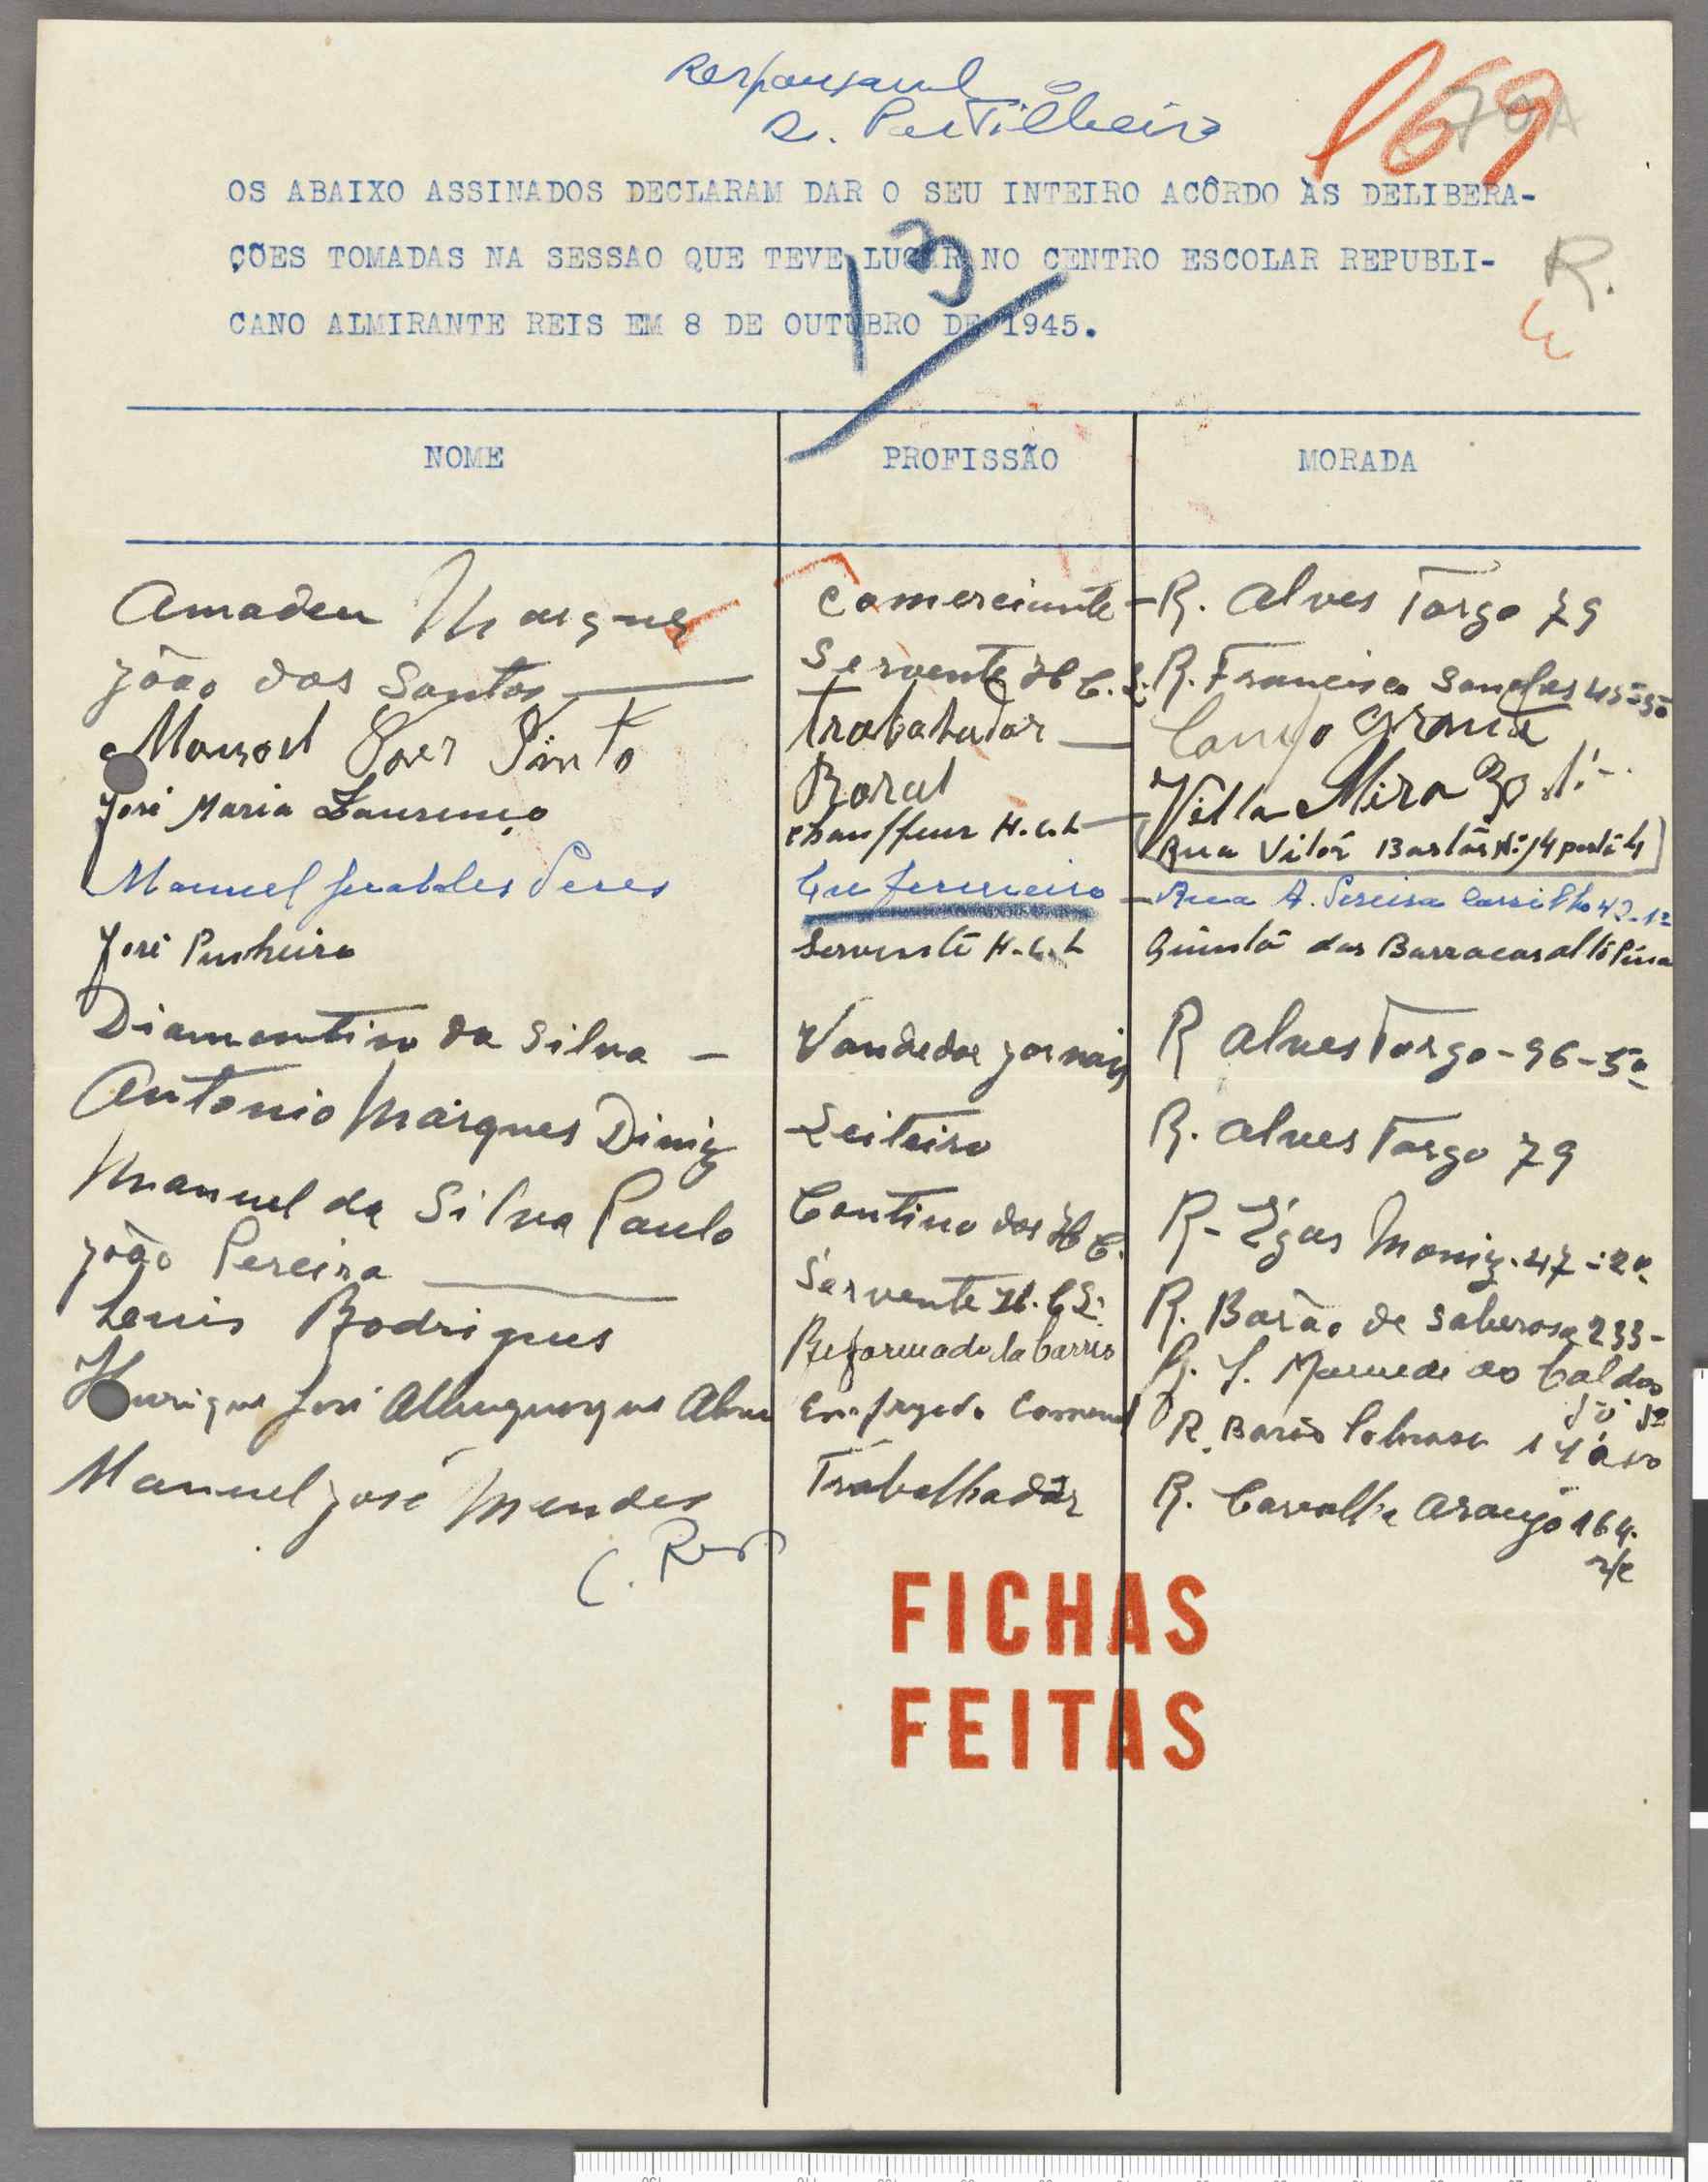 169
OS ABAIXO ASSINADOS DECLARAM DAR O SEU INTEIRO ACÔRDO ÀS DELIBERA-
ÇÕES TOMADAS NA SESSAO QUE TEVE LUGAR NO CENTRO ESCOLAR REPUBLI-
CANO ALMIRANTE REIS EM 8 DE OUTUBRO DE 1945.
13
R.
NOME PROFISSÃO MORADA
Amadeu Marques Comerciante - R. Alves Torgo 79
João dos Santos Servente H.C.L. R. Francisco Sanches
Pinto Trabalhador
Roral Villa
José Maria Laurenço chauffeur H.C.L (Rua Vitór Bastos Nº 14 portá 4)
Manuel Peres Enfermeiro - Rua A. Pereira Carrilho 42-1º
José Pinheiro Servente H.C.L Quintã das Barracas alto Pina
Diamantino da Silva - Vandedor jornais R Alves Torgo - 96 - 5º
Antonio Marques Diniz Leiteiro R. Alves Torgo 79
Manuel da Silva Paulo Contino dos H C. R- Égas Moniz. 47 - 2º
João Pereira Servente H.C.L. R. Barão de Saberosa 233-
Luis Rodrigues Reformado da Carris S. Mamede ao Caldas
Henrique José Albuquerque R. Barão
Manuel José Mendes Trabalhadôr R. Carvalho Araujo 164.
r/c
FICHAS
FEITAS